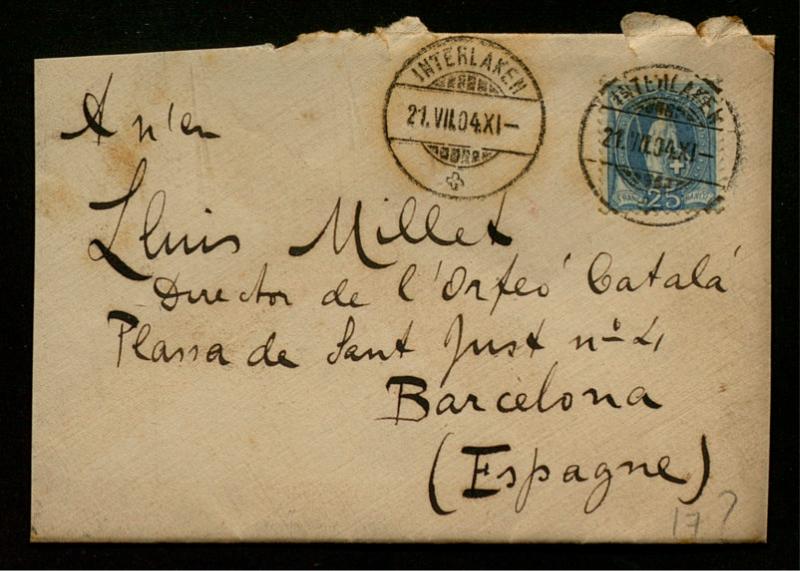 INTERLAKEN
21.VII.04.XI–
INTERLAKEN
21.VII.04.XI–
25
A n'en
Lluis Millet
Director de l'Orfeó Catalá
Plassa de Sant Just nº 4,
Barcelona
(Espagne)
17?